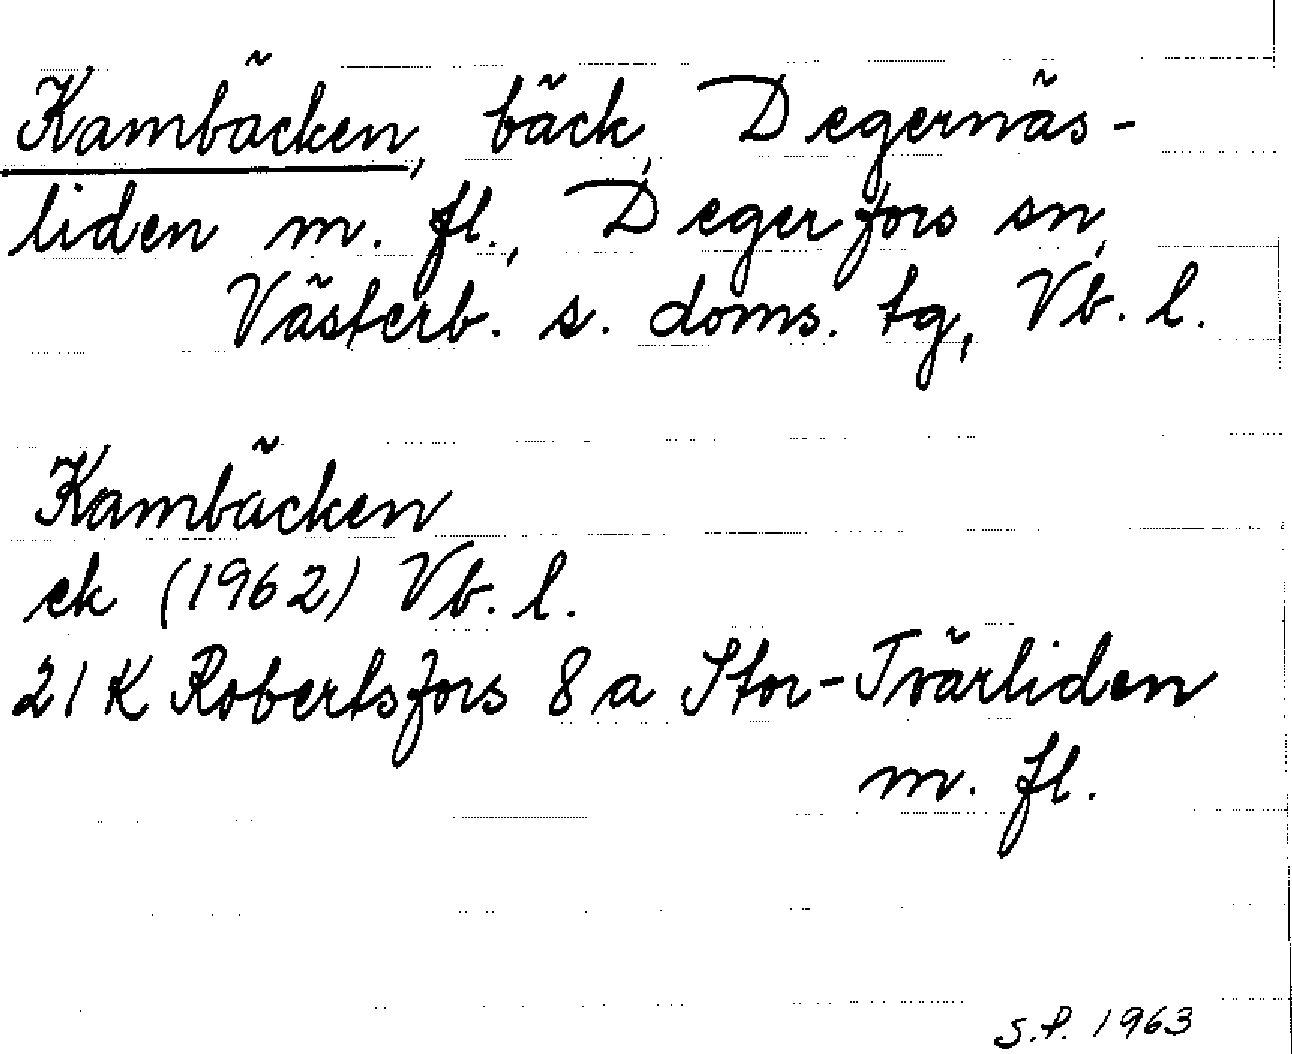 Kambäcken, bäck, Degernäs-
liden m. fl., Degerfors sn,
Västerb. s. doms. tg, Vb. l.
Kambäcken
ek (1962) Vb. l.
21 K Robertsfors 8 a Stor-Tvärliden
m. fl.
S.P. 1963